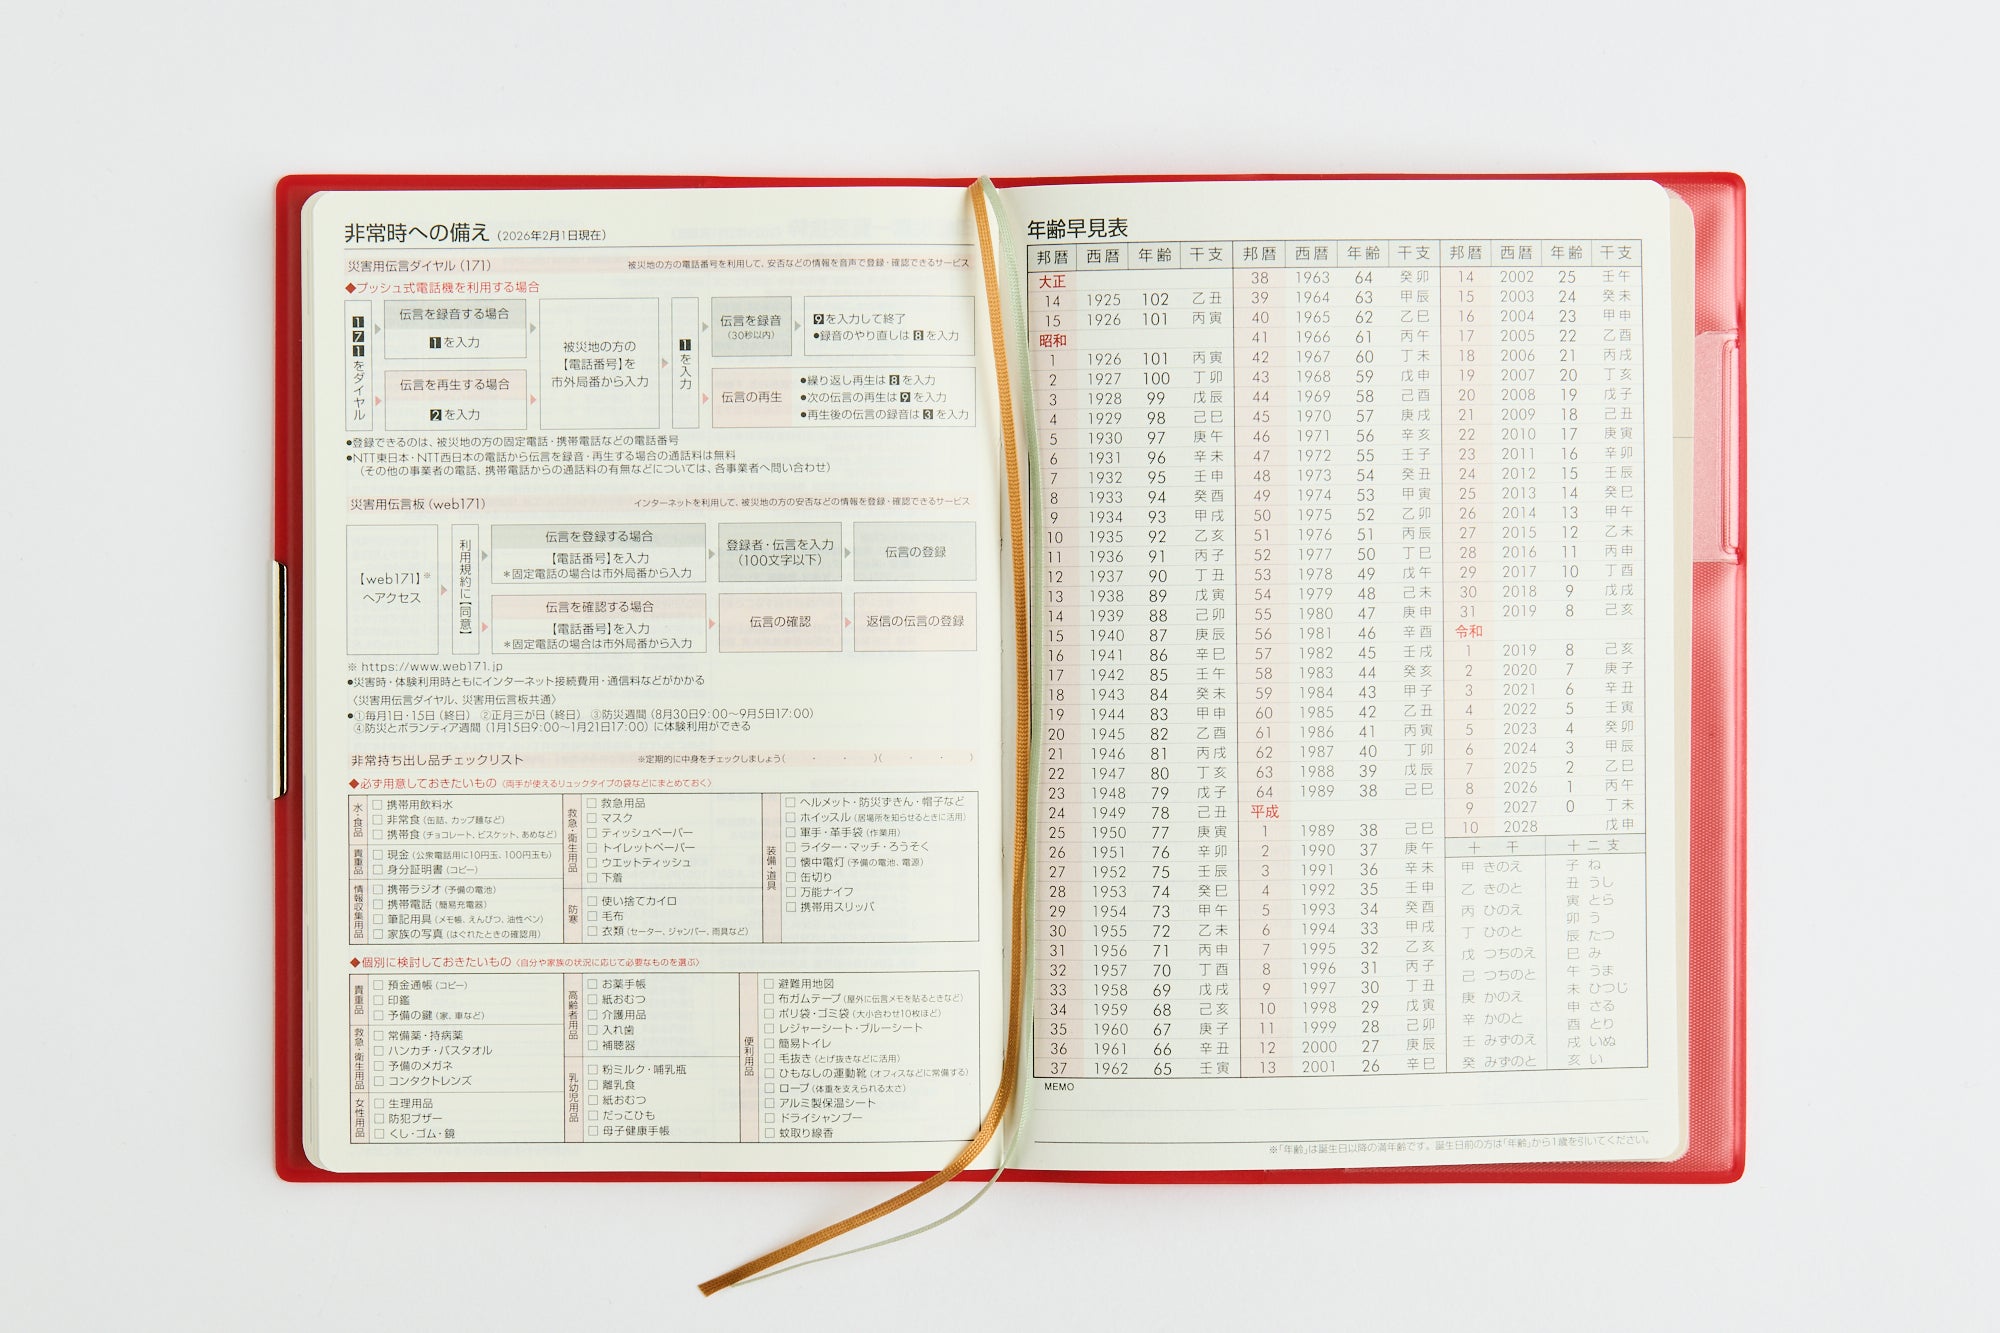 非常時への備え（2026年2月1日現在）
災害用伝言ダイヤル（171） 被災地の方の電話番号を利用して、安否などの情報を音声で登録・確認できるサービス
◆プッシュ式電話機を利用する場合
171をダイヤル
伝言を録音する場合
1を入力
伝言を再生する場合
2を入力
被災地の方の
【電話番号】を
市外局番から入力
1を入力
伝言を録音
（30秒以内）
9を入力して終了
●録音のやり直しは8を入力
伝言の再生
●繰り返し再生は8を入力
●次の伝言の再生は9を入力
●再生後の伝言の録音は3を入力
●登録できるのは、被災地の方の固定電話・携帯電話などの電話番号
●NTT東日本・NTT西日本の電話から伝言を録音・再生する場合の通話料は無料
（その他の事業者の電話、携帯電話からの通話料の有無などについては、各事業者へ問い合わせ）
災害用伝言板（web171） インターネットを利用して、被災地の方の安否などの情報を登録・確認できるサービス
【web171】※
へアクセス
利用規約に【同意】
伝言を登録する場合
【電話番号】を入力
＊固定電話の場合は市外局番から入力
登録者・伝言を入力
（100文字以下）
伝言の登録
伝言を確認する場合
【電話番号】を入力
＊固定電話の場合は市外局番から入力
伝言の確認
返信の伝言の登録
※ https://www.web171.jp
●災害時・体験利用時ともにインターネット接続費用・通信料などがかかる
〈災害用伝言ダイヤル、災害用伝言板共通〉
●①毎月1日・15日（終日） ②正月三が日（終日） ③防災週間（8月30日9:00～9月5日17:00）
④防災とボランティア週間（1月15日9:00～1月21日17:00）に体験利用ができる
非常持ち出し品チェックリスト ※定期的に中身をチェックしましょう（ ・ ・ ）（ ・ ・ ）
◆必ず用意しておきたいもの〈両手が使えるリュックタイプの袋などにまとめておく〉
水・食品
□ 携帯用飲料水
□ 非常食（缶詰、カップ麺など）
□ 携帯食（チョコレート、ビスケット、あめなど）
貴重品
□ 現金（公衆電話用に10円玉、100円玉も）
□ 身分証明書（コピー）
情報収集用品
□ 携帯ラジオ（予備の電池）
□ 携帯電話（簡易充電器）
□ 筆記用具（メモ帳、えんぴつ、油性ペン）
□ 家族の写真（はぐれたときの確認用）
救急・衛生用品
□ 救急用品
□ マスク
□ ティッシュペーパー
□ トイレットペーパー
□ ウエットティッシュ
□ 下着
防寒
□ 使い捨てカイロ
□ 毛布
□ 衣類（セーター、ジャンパー、雨具など）
装備・道具
□ ヘルメット・防災ずきん・帽子など
□ ホイッスル（居場所を知らせるときに活用）
□ 軍手・革手袋（作業用）
□ ライター・マッチ・ろうそく
□ 懐中電灯（予備の電池、電源）
□ 缶切り
□ 万能ナイフ
□ 携帯用スリッパ
◆個別に検討しておきたいもの〈自分や家族の状況に応じて必要なものを選ぶ〉
貴重品
□ 預金通帳（コピー）
□ 印鑑
□ 予備の鍵（家、車など）
救急・衛生用品
□ 常備薬・持病薬
□ ハンカチ・バスタオル
□ 予備のメガネ
□ コンタクトレンズ
女性用品
□ 生理用品
□ 防犯ブザー
□ くし・ゴム・鏡
高齢者用品
□ お薬手帳
□ 紙おむつ
□ 介護用品
□ 入れ歯
□ 補聴器
乳幼児用品
□ 粉ミルク・哺乳瓶
□ 離乳食
□ 紙おむつ
□ だっこひも
□ 母子健康手帳
便利用品
□ 避難用地図
□ 布ガムテープ（屋外に伝言メモを貼るときなど）
□ ポリ袋・ゴミ袋（大小合わせ10枚ほど）
□ レジャーシート・ブルーシート
□ 簡易トイレ
□ 毛抜き（とげ抜きなどに活用）
□ ひもなしの運動靴（オフィスなどに常備する）
□ ロープ（体重を支えられる太さ）
□ アルミ製保温シート
□ ドライシャンプー
□ 蚊取り線香
年齢早見表
邦暦 西暦 年齢 干支
大正
14 1925 102 乙丑
15 1926 101 丙寅
昭和
1 1926 101 丙寅
2 1927 100 丁卯
3 1928 99 戊辰
4 1929 98 己巳
5 1930 97 庚午
6 1931 96 辛未
7 1932 95 壬申
8 1933 94 癸酉
9 1934 93 甲戌
10 1935 92 乙亥
11 1936 91 丙子
12 1937 90 丁丑
13 1938 89 戊寅
14 1939 88 己卯
15 1940 87 庚辰
16 1941 86 辛巳
17 1942 85 壬午
18 1943 84 癸未
19 1944 83 甲申
20 1945 82 乙酉
21 1946 81 丙戌
22 1947 80 丁亥
23 1948 79 戊子
24 1949 78 己丑
25 1950 77 庚寅
26 1951 76 辛卯
27 1952 75 壬辰
28 1953 74 癸巳
29 1954 73 甲午
30 1955 72 乙未
31 1956 71 丙申
32 1957 70 丁酉
33 1958 69 戊戌
34 1959 68 己亥
35 1960 67 庚子
36 1961 66 辛丑
37 1962 65 壬寅
邦暦 西暦 年齢 干支
38 1963 64 癸卯
39 1964 63 甲辰
40 1965 62 乙巳
41 1966 61 丙午
42 1967 60 丁未
43 1968 59 戊申
44 1969 58 己酉
45 1970 57 庚戌
46 1971 56 辛亥
47 1972 55 壬子
48 1973 54 癸丑
49 1974 53 甲寅
50 1975 52 乙卯
51 1976 51 丙辰
52 1977 50 丁巳
53 1978 49 戊午
54 1979 48 己未
55 1980 47 庚申
56 1981 46 辛酉
57 1982 45 壬戌
58 1983 44 癸亥
59 1984 43 甲子
60 1985 42 乙丑
61 1986 41 丙寅
62 1987 40 丁卯
63 1988 39 戊辰
64 1989 38 己巳
平成
1 1989 38 己巳
2 1990 37 庚午
3 1991 36 辛未
4 1992 35 壬申
5 1993 34 癸酉
6 1994 33 甲戌
7 1995 32 乙亥
8 1996 31 丙子
9 1997 30 丁丑
10 1998 29 戊寅
11 1999 28 己卯
12 2000 27 庚辰
13 2001 26 辛巳
邦暦 西暦 年齢 干支
14 2002 25 壬午
15 2003 24 癸未
16 2004 23 甲申
17 2005 22 乙酉
18 2006 21 丙戌
19 2007 20 丁亥
20 2008 19 戊子
21 2009 18 己丑
22 2010 17 庚寅
23 2011 16 辛卯
24 2012 15 壬辰
25 2013 14 癸巳
26 2014 13 甲午
27 2015 12 乙未
28 2016 11 丙申
29 2017 10 丁酉
30 2018 9 戊戌
31 2019 8 己亥
令和
1 2019 8 己亥
2 2020 7 庚子
3 2021 6 辛丑
4 2022 5 壬寅
5 2023 4 癸卯
6 2024 3 甲辰
7 2025 2 乙巳
8 2026 1 丙午
9 2027 0 丁未
10 2028 戊申
十干
甲 きのえ
乙 きのと
丙 ひのえ
丁 ひのと
戊 つちのえ
己 つちのと
庚 かのえ
辛 かのと
壬 みずのえ
癸 みずのと
十二支
子 ね
丑 うし
寅 とら
卯 う
辰 たつ
巳 み
午 うま
未 ひつじ
申 さる
酉 とり
戌 いぬ
亥 い
MEMO
※「年齢」は誕生日以降の満年齢です。誕生日前の方は「年齢」から1歳を引いてください。